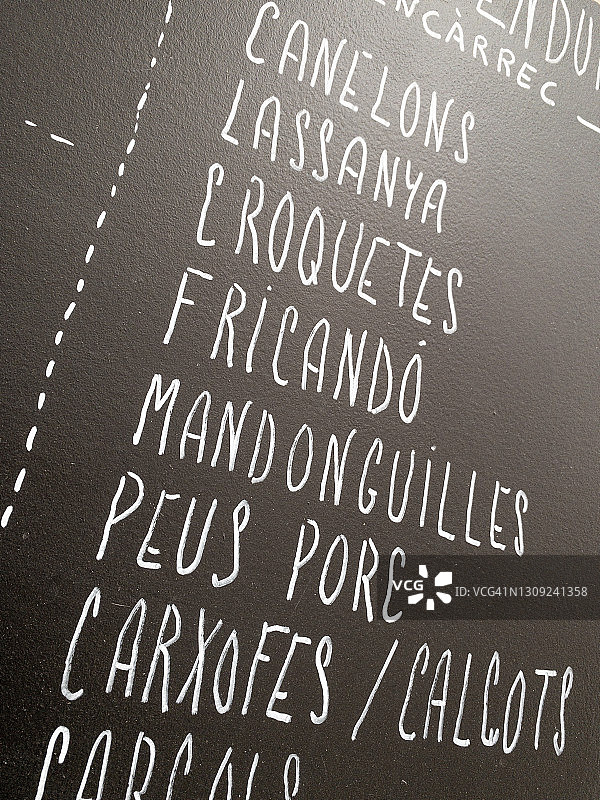 ENCÀRREC
CANELONS
LASSANYA
CROQUETES
FRICANDÓ
MANDONGUILLES
PEUS PORC
CARXOFES / CALÇOTS
CARGOLS
VCG ID: VCG41N1309241358